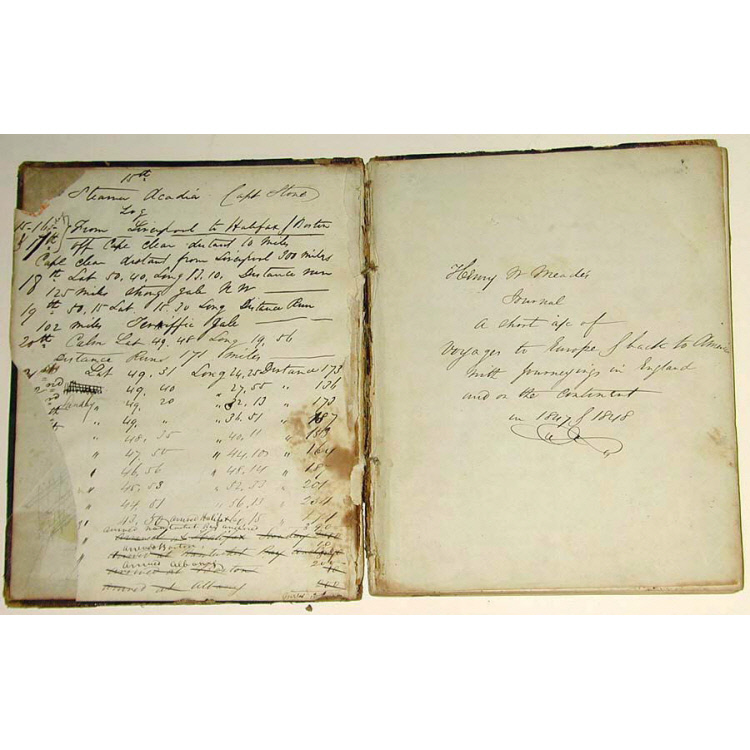 15th
Steamer Acadia Capt Stone
Log
15-16th From Liverpool to Halifax & Boston
& 17th off Cape Clear distand 10 Miles
Cape Clear distant from Liverpool 300 miles
18th Lat 50.40, Long 12.10, Distance run
125 miles strong gale N W
19th 50.15 Lat 15.20 Long Distance Run
102 miles Terriffic Gale
20th Calm Lat 49.48 Long 19.56
Distance Run 171 miles
21st Lat 49.51 Long 24.25 Distance 173
2nd 49.40 27.55 " 136
Sunday " 49.20 " 32.13 " 173
" 49. " 36.51 " 187
" 48.35 " 40.11 "
" 47.50 " 44.10 " 164
" 46.56 " 48.14 " 181
" 45.53 " 52.52 " 201
" 44.51 " 56.13 " 234
arrived Halifax
arrived Boston
arrived Albany
Henry W Meades
Journal
a short a/c of
voyages to Europe & back to America
with journeyings in England
and on the continent
in 1847 & 1848